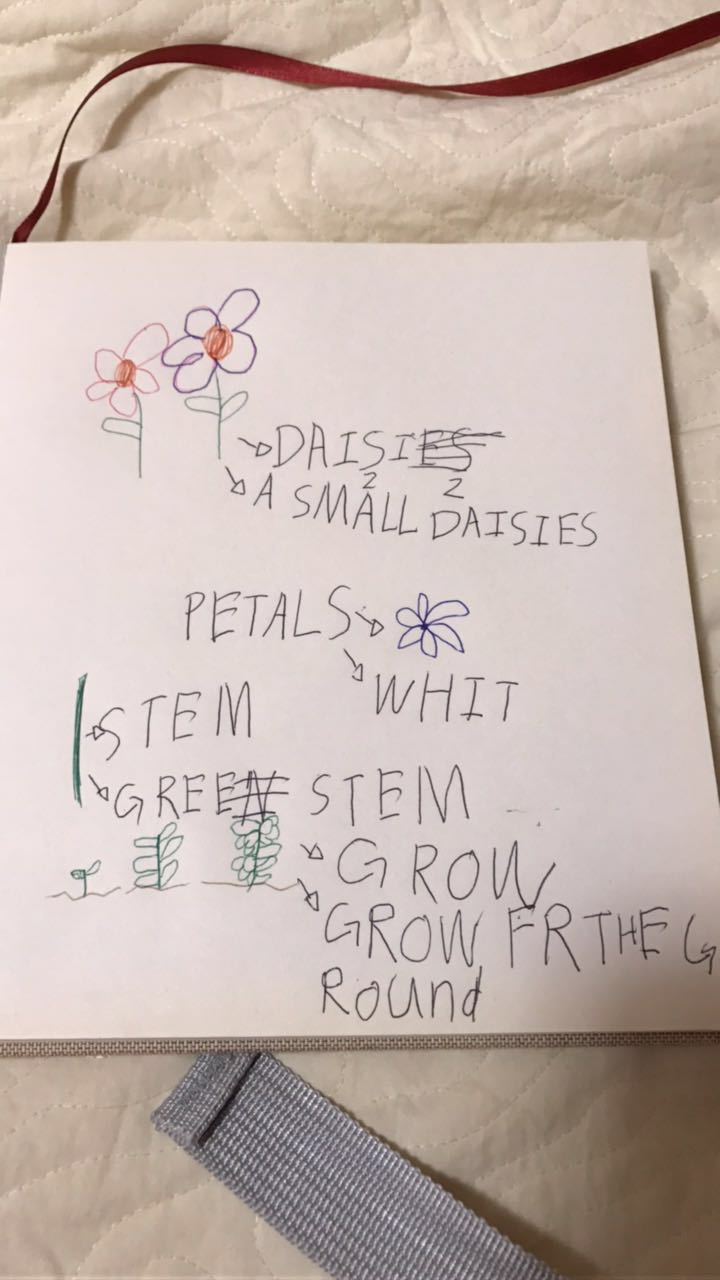 DAISIES
2 2
A SMALL DAISIES
PETALS
WHIT
STEM
GREEN STEM
GROW
GROW FR THE G
Round